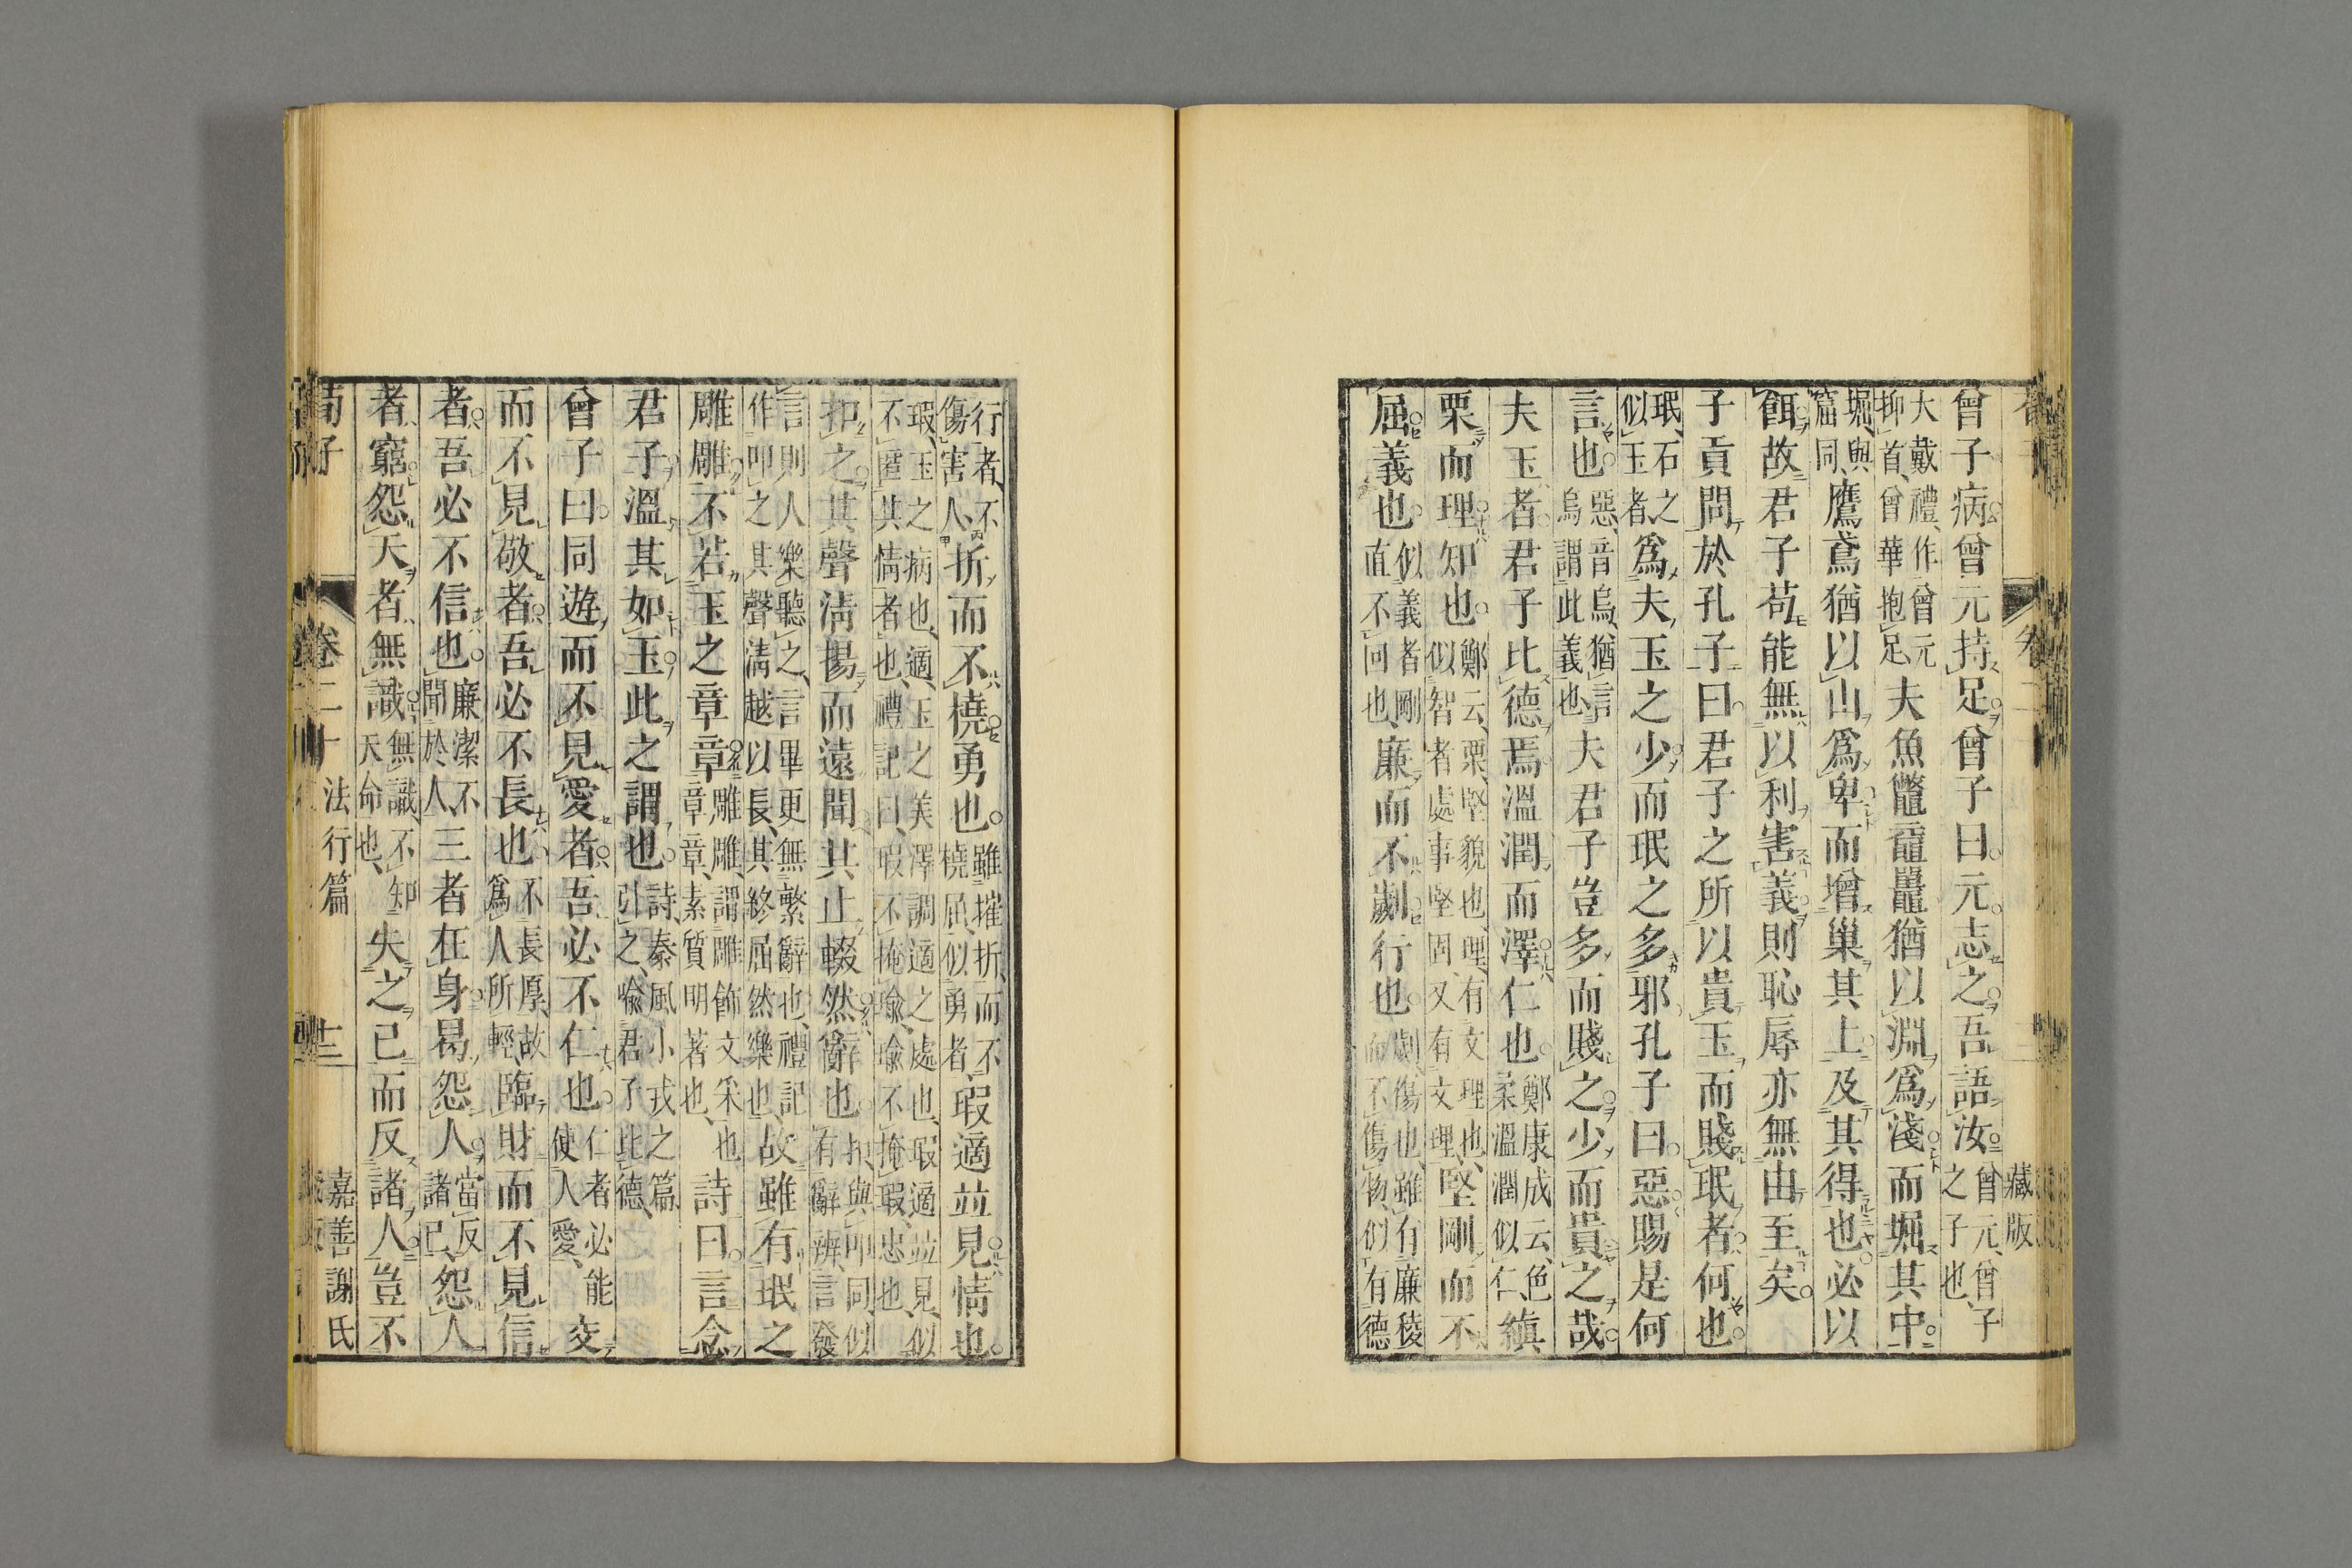 藏版
曾子病曾元持足曾子曰元志之吾語汝曾元曾子之子也
大戴禮作曾元抑首曾華抱足夫魚鼈黿鼉猶以淵爲淺而堀其中
堀與窟同鷹鳶猶以山爲卑而增巢其上及其得也必以
餌故君子苟能無以利害義則恥辱亦無由至矣
子貢問於孔子曰君子之所以貴玉而賤珉者何也
珉石之似玉者爲夫玉之少而珉之多邪孔子曰惡賜是何
言也惡音烏猶言烏謂此義也夫君子豈多而賤之少而貴之哉
夫玉者君子比德焉溫潤而澤仁也鄭康成云色柔溫潤似仁縝
栗而理知也鄭云栗堅貌也理有文理也似智者處事堅固又有文理堅剛而不
屈義也似義者剛直不回也廉而不劌行也劌傷也雖有廉稜而不傷物似有德
行者不傷害人折而不橈勇也雖摧折而不橈屈似勇者瑕適並見情也
瑕玉之病也適玉之美澤調適之處也瑕適並見似不匿其情者也禮記曰瑕不掩瑜瑜不掩瑕忠也
扣之其聲清揚而遠聞其止輟然辭也扣與叩同似有辭辨言發
言則人樂聽之言畢更無繁辭也禮記作叩之其聲清越以長其終屈然樂也故雖有珉之
雕雕不若玉之章章雕雕謂雕飾文采也章章素質明著也詩曰言念
君子溫其如玉此之謂也詩秦風小戎之篇引之喩君子比德
曾子曰同遊而不見愛者吾必不仁也仁者必能使人愛交
而不見敬者吾必不長也不長厚故爲人所輕臨財而不見信
者吾必不信也廉潔不聞於人三者在身曷怨人當反諸己怨人
者窮怨天者無識無識不知天命也失之己而反諸人豈不
荀子 卷二十 法行篇 十三 嘉善謝氏